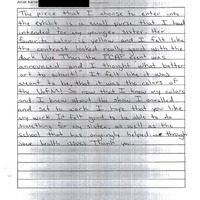 The piece that I choose to enter into
the exhibit is a small purse that I had
intended for my younger sister. Her
favorite color is yellow and I felt like
the contrast looked really good with the
dark blue. Then the PCAP event was
announced and I thought "what better
art to submit!" It felt like it was
meant to be, that it was the colors of
the UofM! So now that I know my colors
and I know about the show I enrolled
and set to work. I hope that you like
my work. It felt good to be able to do
something for my sister, as well as the
school that has ongoingly helped me through
some health issues. Thank you.